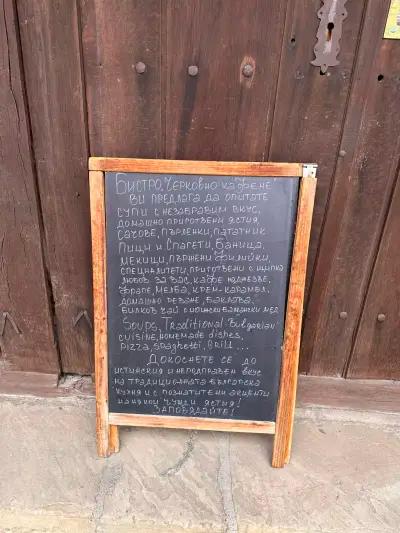 Бистро, Черковно кафене
Ви предлага да опитате
супи с незабравим вкус,
домашно приготвени ястия
сачове, пърленки, пататник
пици и спагети, баница,
мекици, пържени филийки,
специалитети, приготвени с щипка
любов за вас, кафе на джезве,
фрапе, мелба, крем-карамел,
домашно реване, баклава,
билков чай с
мед
Soups, Traditional Bulgarian
cuisine, homemade dishes,
pizza, spaghetti, Grill...
Докоснете се до
истинския и неподправен вкус
на традиционната българска
кухня и с познатите ни акценти
на някои чужди ястия!
Заповядайте!